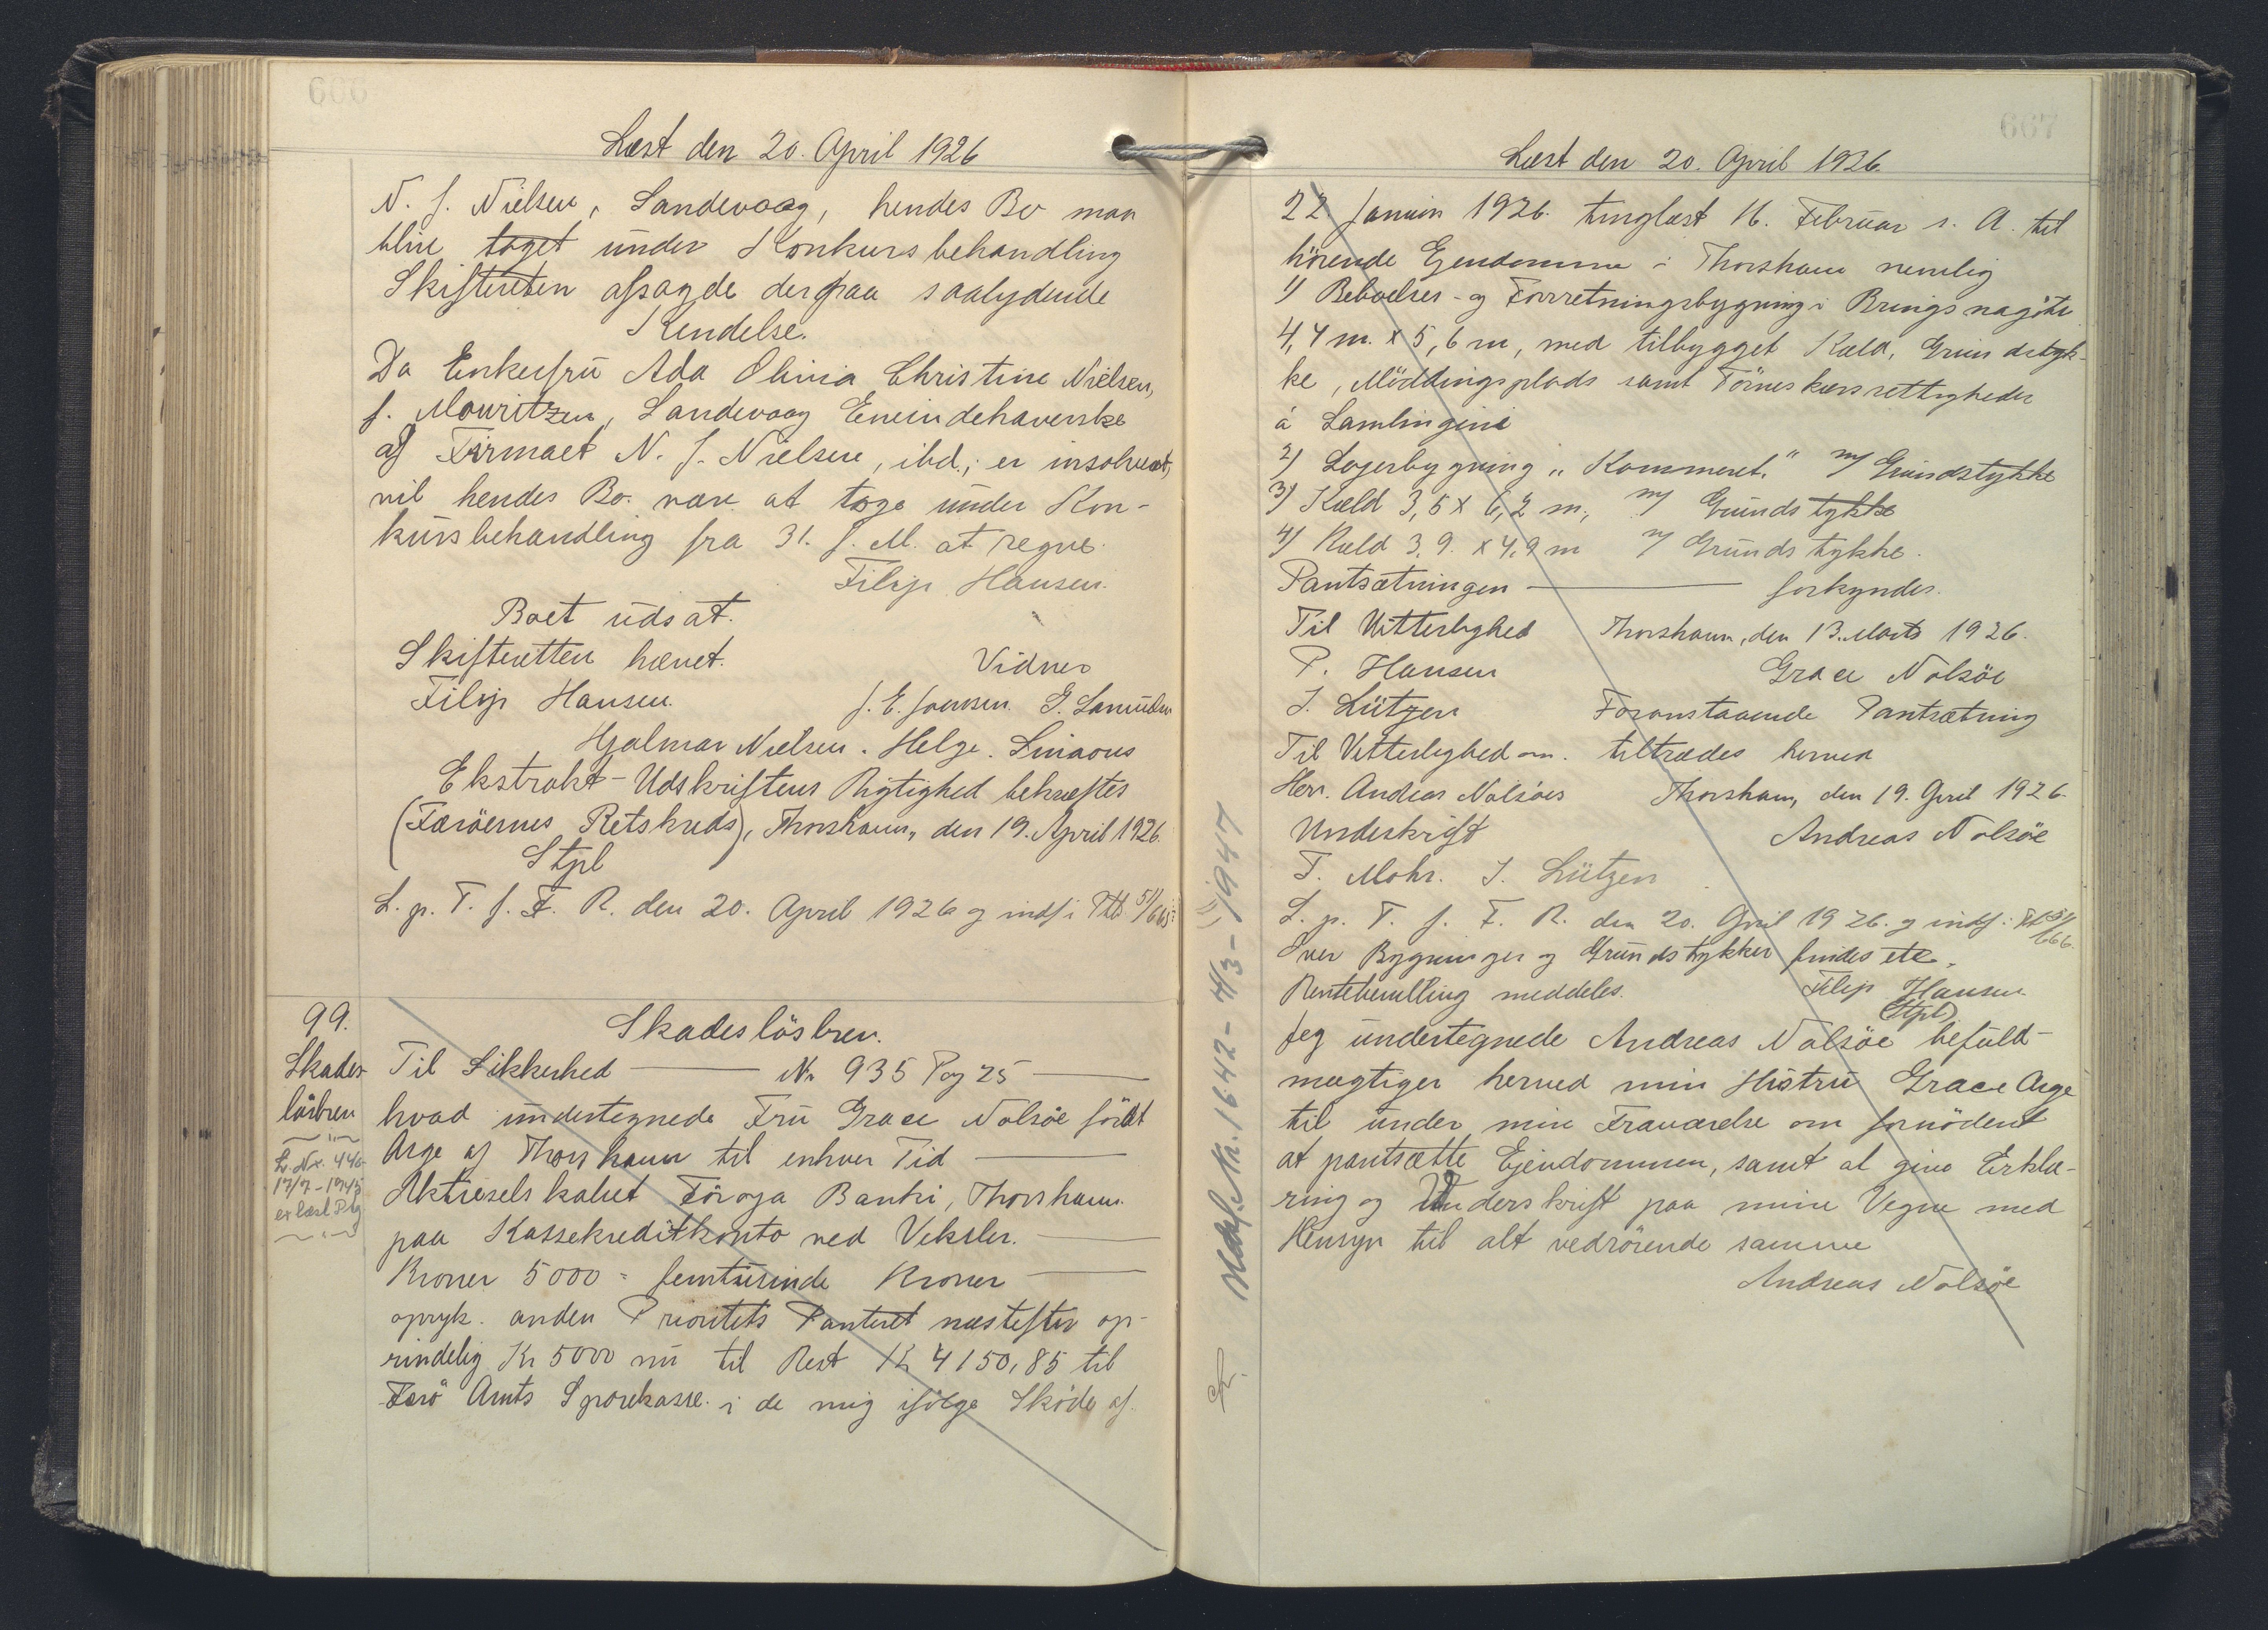 666
Læst den 20. April 1926
N. J. Nielsen, Sandevaag, hendes Bo maa
blive taget under Konkursbehandling
Skifteretten afsagde derpaa saalydende
Kendelse.
Da Enkefru Ada Olivia Christine Nielsen,
f. Mouritzen, Sandevaag Eneindehaverske
af Firmaet N. J. Nielsen, ibd., er insolvent,
vil hendes Bo være at tage under Kon-
kursbehandling fra 31. f. M. at regne.
Filip Hansen.
Boet udsat.
Skifteretten hævet.
Vidner
Filip Hansen.
J. E. Joensen. G. Samuelsen
Hjalmar Nielsen. Helge
Ekstrakt-Udskriftens Rigtighed bekræftes
(Færöernes Retskreds), Thorshavn, den 19. April 1926.
Stpl
L. p. T. f. F. R. den 20. April 1926 og indf i Ptb 51/665
99.
Skades-
lösbrev
L. Nr. 446
17/7-1945
er læst Ptg
Skadeslösbrev.
Til Sikkerhed — Nr 935 Pag 25 —
hvad undertegnede Fru Grace Nolsöe födt
Arge af Thorshavn til enhver Tid —
Aktieselskabet Föroya Banki, Thorshavn.
paa Kassekreditkonto ved Veksler. —
Kroner 5000 = femtusinde Kroner —
opryk. anden Prioritets Panteret næstefter op-
rindelig Kr 5000 nu til Rest Kr 4150,85 til
Færö Amts Sparekasse i de mig ifölge Sköde af
667
Læst den 20. April 1926.
22. Januar 1926. tinglæst 16. Februar s. A. til
hörende Ejendomme i Thorshavn nemlig
1) Beboelses- og Forretningsbygning i Bringsnagötu
4,4 m. x 5,6 m, med tilbygget Kæld, Grundstyk-
ke, Möddingsplads samt Törneskærsrettigheder
á Lamlingini
2) Lagerbygning "Kammeret." m/ Grundstykke
3) Kæld 3,5 x 6,2 m, m/ Grundstykke
4) Kæld 3,9. x 4,9 m m/ Grundstykke.
Pantsætningen — forkyndes.
Til Vitterlighed Thorshavn, den 13. Marts 1926.
P. Hansen Grace Nolsöe
J. Lützen Foranstaaende Pantsætning
Til Vitterlighed om. tiltrædes herved
Herr. Andreas Nolsöes Thorshavn, den 19. April 1926.
Underskrift Andreas Nolsöe
T. Mohr. J. Lützen
L. p. T. f. F. R. den 20. April 1926. og indf. i Ptb 51/666.
Over Bygninger og Grundstykker findes etc.
Rentebevilling meddeles. Filip Hansen
(Stpl)
Jeg undertegnede Andreas Nolsöe befuld-
mægtiger herved min Hustru Grace Arge
til under min Fraværelse om fornödent
at pantsætte Ejendommen, samt at give Erklæ-
ring og Underskrift paa mine Vegne med
Hensyn til alt vedrörende samme
Andreas Nolsöe
Udsl. Nr. 1642 - 4/3 - 1947